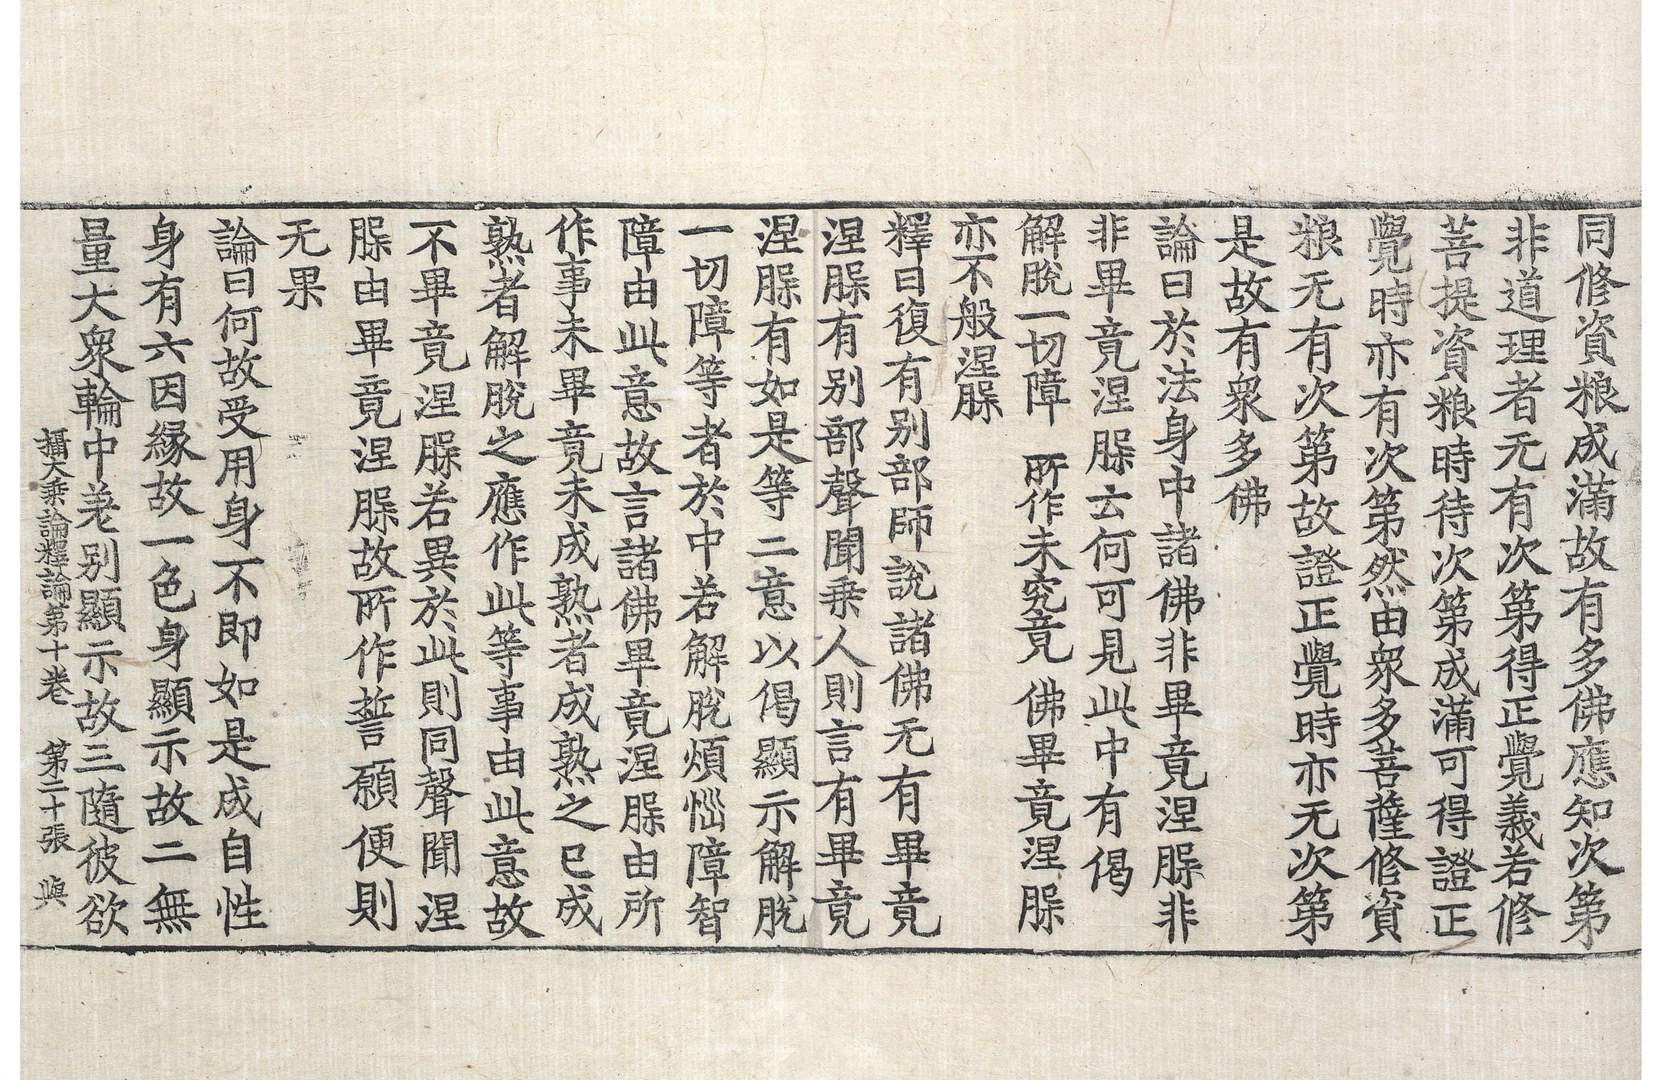 同修資粮成滿故有多佛應知次第
非道理者无有次第得正覺義若修
菩提資粮時待次第成滿可得證正
覺時亦有次第然由衆多菩薩修資
粮无有次第故證正覺時亦无次第
是故有衆多佛
論曰於法身中諸佛非畢竟涅槃非
非畢竟涅槃云何可見此中有偈
解脫一切障　所作未究竟　佛畢竟涅槃
亦不般涅槃
釋曰復有別部師說諸佛无有畢竟
涅槃有別部聲聞乘人則言有畢竟
涅槃有如是等二意以偈顯示解脫
一切障等者於中若解脫煩惱障智
障由此意故言諸佛畢竟涅槃由所
作事未畢竟未成熟者成熟之已成
熟者解脫之應作此等事由此意故
不畢竟涅槃若異於此則同聲聞涅
槃由畢竟涅槃故所作誓願便則
无果
論曰何故受用身不即如是成自性
身有六因緣故一色身顯示故二無
量大衆輪中差別顯示故三隨彼欲
攝大乘論釋論第十卷　第二十張　與